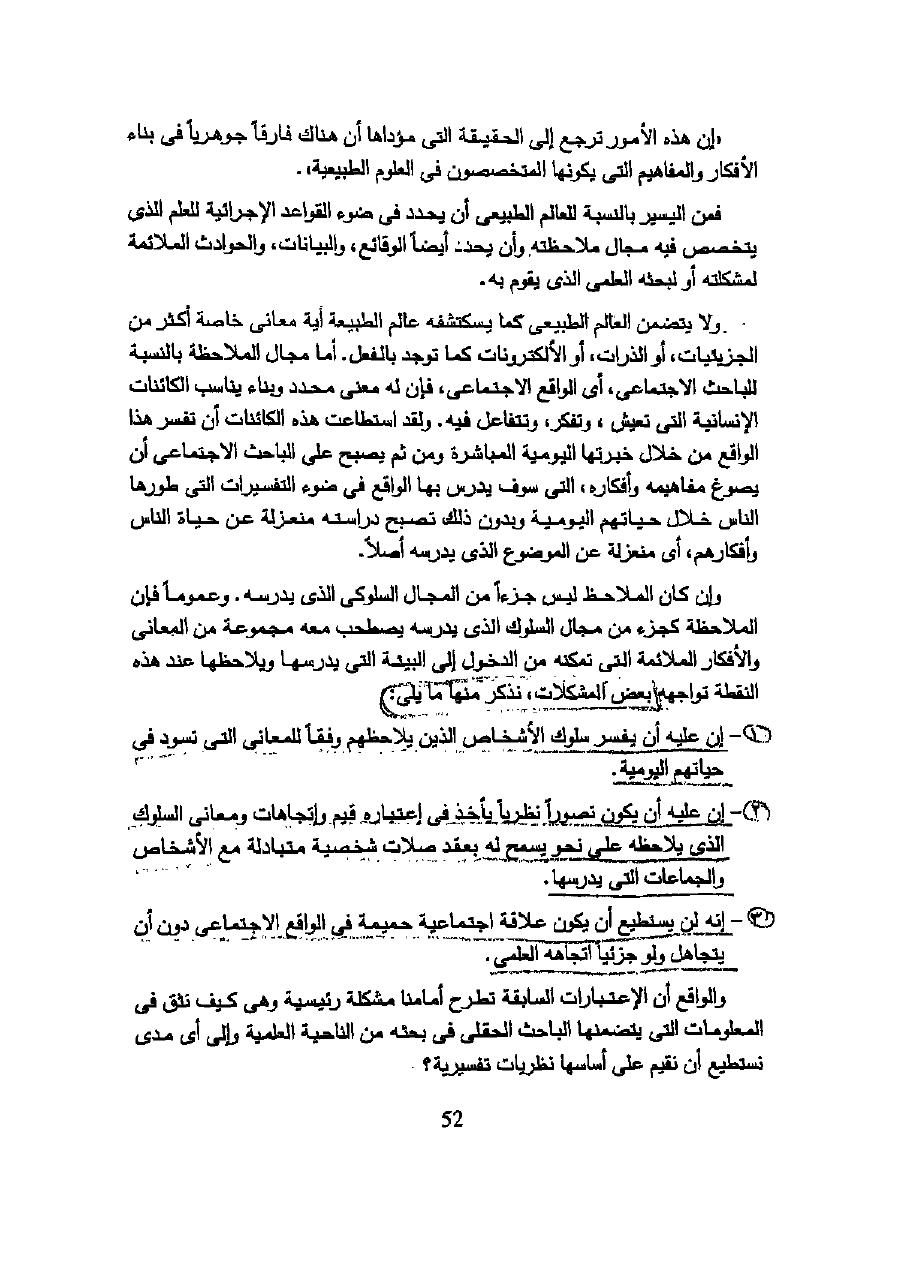 «إن هذه الأمور ترجع إلى الحقيقة التى مؤداها أن هناك فارقاً جوهرياً فى بناء
الأفكار والمفاهيم التى يكونها المتخصصون فى العلوم الطبيعية» .
فمن اليسير بالنسبة للعالم الطبيعى أن يحدد فى ضوء القواعد الإجرائية للعلم الذى
يتخصص فيه مجال ملاحظته وأن يحدد أيضاً الوقائع، والبيانات، والحوادث الملائمة
لمشكلته أو لبحثه العلمى الذى يقوم به.
ولا يتضمن العالم الطبيعى كما يسكتشفه عالم الطبيعة أية معانى خاصة أكثر من
الجزئيات، أو الذرات، أو الألكترونات كما توجد بالفعل. أما مجال الملاحظة بالنسبة
للباحث الاجتماعى، أى الواقع الاجتماعى، فإن له معنى محدد وبناء يناسب الكائنات
الإنسانية التى تعيش ، وتفكر، وتتفاعل فيه. ولقد استطاعت هذه الكائنات أن تفسر هذا
الواقع من خلال خبرتها اليومية المباشرة ومن ثم يصبح على الباحث الاجتماعى أن
يصوغ مفاهيمه وأفكاره، التى سوف يدرس بها الواقع فى ضوء التفسيرات التى طورها
الناس خلال حياتهم اليومية وبدون ذلك تصبح دراسته منعزلة عن حياة الناس
وأفكارهم، أى منعزلة عن الموضوع الذى يدرسه أصلاً.
وإن كان الملاحظ ليس جزءاً من المجال السلوكى الذى يدرسه . وعموماً فإن
الملاحظة كجزء من مجال السلوك الذى يدرسه يصطحب معه مجموعة من المعانى
والأفكار الملائمة التى تمكنه من الدخول إلى البيئة التى يدرسها ويلاحظها عند هذه
النقطة تواجهه بعض المشكلات، نذكر منها ما يلى:
(١)- إن عليه أن يفسر سلوك الأشخاص الذين يلاحظهم وفقاً للمعانى التى تسود فى
حياتهم اليومية .
(٢)- إن عليه أن يكون تصوراً نظرياً يأخذ فى إعتباره قيم وإتجاهات ومعانى السلوك
الذى يلاحظه على نحو يسمح له بعقد صلات شخصية متبادلة مع الأشخاص
والجماعات التى يدرسها.
(٣)- إنه لن يستطيع أن يكون علاقة اجتماعية حميمة فى الواقع الاجتماعى دون أن
يتجاهل ولو جزئياً أتجاهه العلمى .
والواقع أن الإعتبارات السابقة تطرح أمامنا مشكلة رئيسية وهى كيف نثق فى
المعلومات التى يتضمنها الباحث الحقلى فى بحثه من الناحية العلمية وإلى أى مدى
نستطيع أن نقيم على أساسها نظريات تفسيرية؟
52